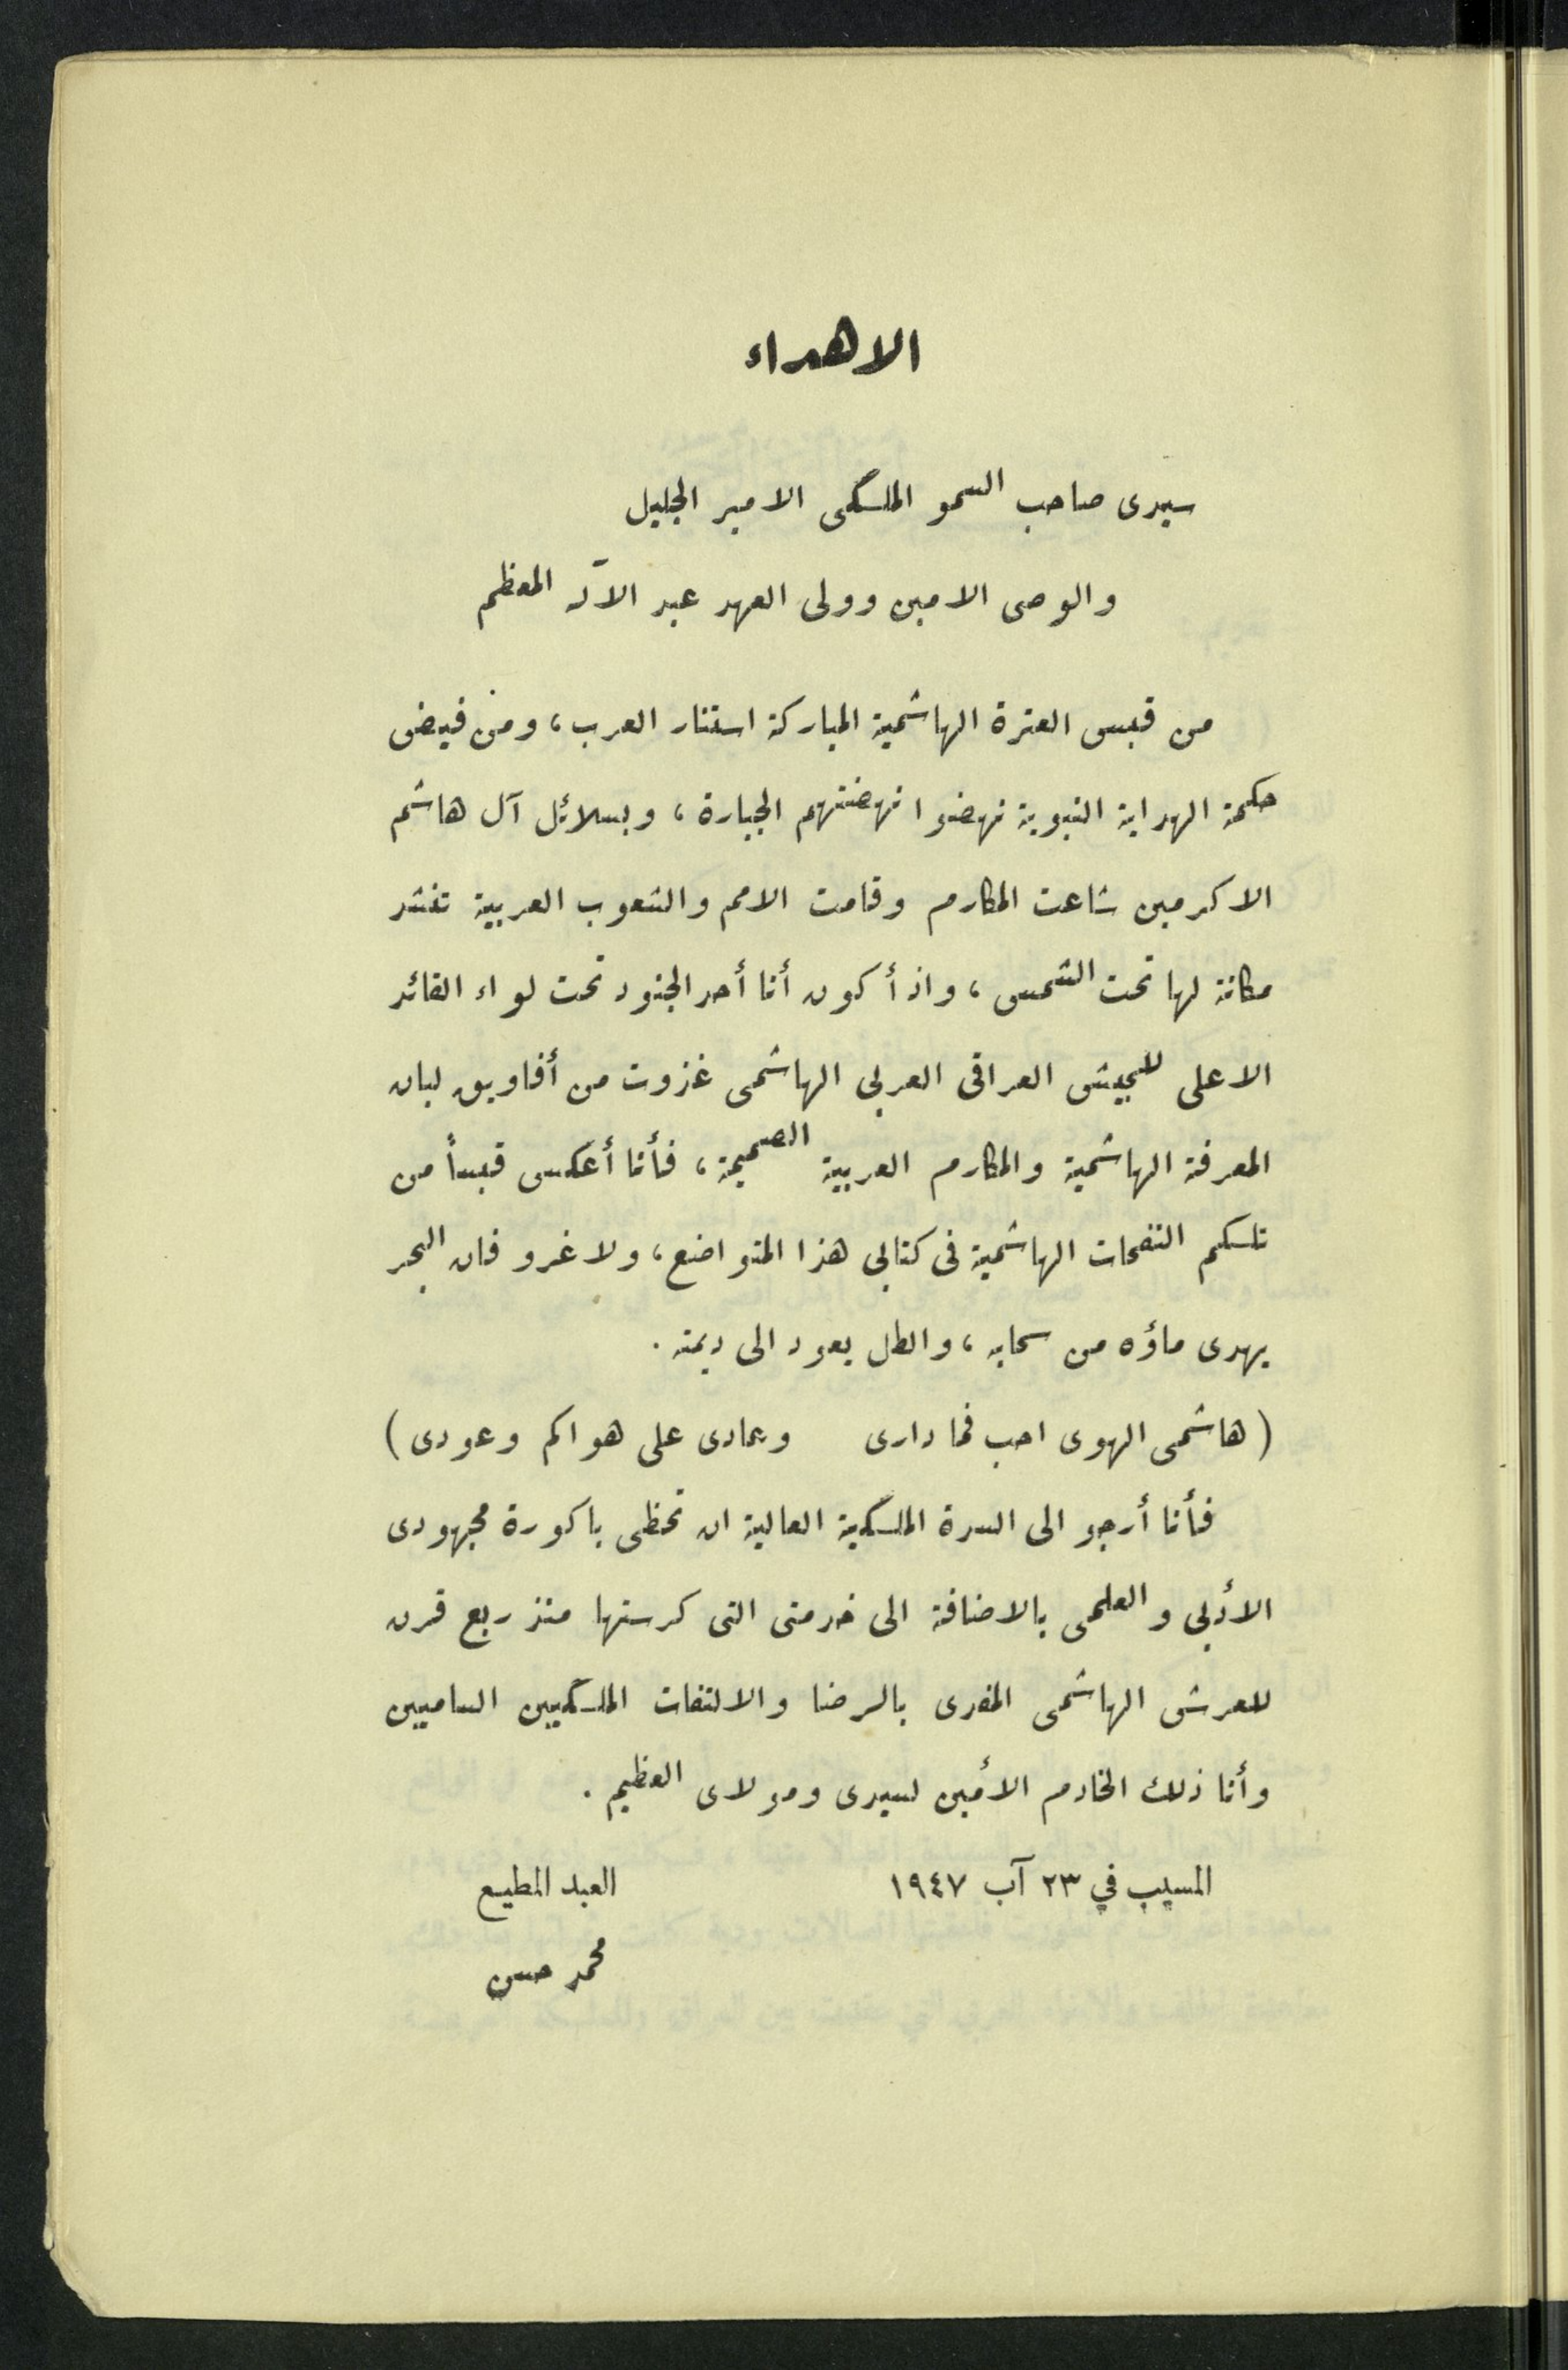 الاهداء
سيدى صاحب السمو الملكى الامير الجليل
والوصى الامين وولى العهد عبد الآله المعظم
من قبس العترة الهاشمية المباركة استنار العرب، ومن فيض
حكمة الهداية النبوية نهضوا نهضتهم الجبارة، وبسلائل آل هاشم
الاكرمين شاعت المكارم وقامت الامم والشعوب العربية تنشد
مكانة لها تحت الشمس، واذ أكون أنا أحد الجنود تحت لواء القائد
الاعلى للجيش العراقى العربى الهاشمى غذوت من أفاويق لبان
المعرفة الهاشمية والمكارم العربية الصميمة، فأنا أعكس قبساً من
تلكم النفحات الهاشمية فى كتابى هذا المتواضع، ولا غرو فان البحر
يهدى ماؤه من سحابه، والطل يعود الى ديمته.
(هاشمى الهوى احب فما دارى وعادى على هواكم وعودى)
فأنا أرجو الى السدة الملكية العالية ان تحظى باكورة مجهودى
الأدبى والعلمى بالاضافة الى خدمتى التى كرستها منذ ربع قرن
للعرش الهاشمى المفدى بالرضا والالتفات الملكيين الساميين
وأنا ذلك الخادم الأمين لسيدى ومولاى العظيم.
المسيب في ٢٣ آب ١٩٤٧ العبد المطيع
محمد حسن